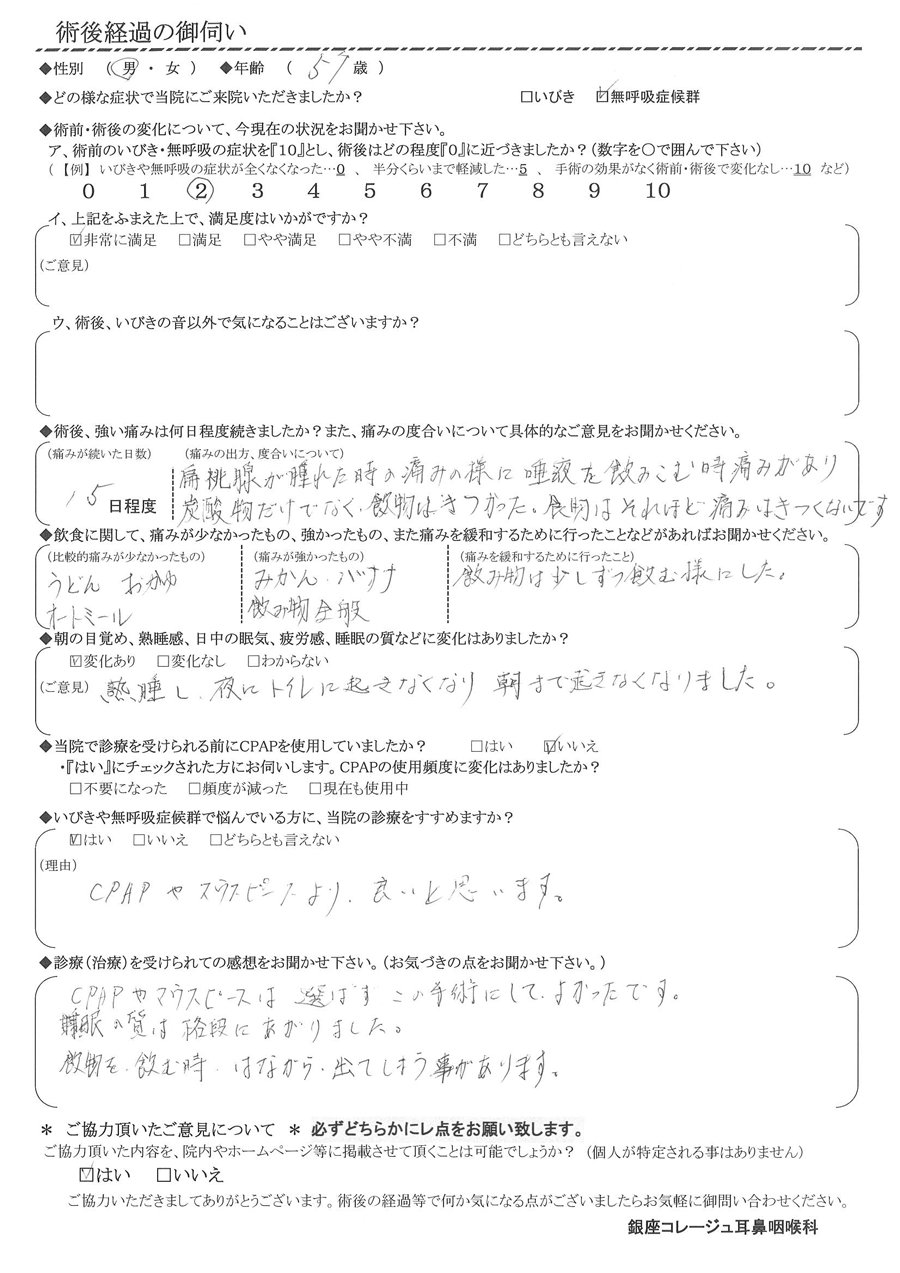 術後経過の御伺い
◆性別 (男・女) ◆年齢 (57歳)
◆どの様な症状で当院にご来院いただきましたか? □いびき ☑無呼吸症候群
◆術前・術後の変化について、今現在の状況をお聞かせ下さい。
ア、術前のいびき・無呼吸の症状を『10』とし、術後はどの程度『0』に近づきましたか?(数字を○で囲んで下さい)
(【例】 いびきや無呼吸の症状が全くなくなった…0 、 半分くらいまで軽減した…5 、 手術の効果がなく術前・術後で変化なし…10 など)
0 1 2 3 4 5 6 7 8 9 10
イ、上記をふまえた上で、満足度はいかがですか?
☑非常に満足 □満足 □やや満足 □やや不満 □不満 □どちらとも言えない
(ご意見)
ウ、術後、いびきの音以外で気になることはございますか?
◆術後、強い痛みは何日程度続きましたか?また、痛みの度合いについて具体的なご意見をお聞かせください。
(痛みが続いた日数) (痛みの出方、度合いについて)
扁桃腺が腫れた時の痛みの様に唾液を飲みこむ時痛みがあり
15日程度 炭酸物だけでなく、飲物はきつかった。食物はそれほど痛みはきつくないです
◆飲食に関して、痛みが少なかったもの、強かったもの、また痛みを緩和するために行ったことなどがあればお聞かせください。
(比較的痛みが少なかったもの) (痛みが強かったもの) (痛みを緩和するために行ったこと)
うどん おかゆ みかん・バナナ 飲み物は少しずつ飲む様にした。
オートミール 飲み物全般
◆朝の目覚め、熟睡感、日中の眠気、疲労感、睡眠の質などに変化はありましたか?
☑変化あり □変化なし □わからない
(ご意見) 熟睡し、夜にトイレに起きなくなり 朝まで起きなくなりました。
◆当院で診療を受けられる前にCPAPを使用していましたか? □はい ☑いいえ
・『はい』にチェックされた方にお伺いします。CPAPの使用頻度に変化はありましたか?
□不要になった □頻度が減った □現在も使用中
◆いびきや無呼吸症候群で悩んでいる方に、当院の診療をすすめますか?
☑はい □いいえ □どちらとも言えない
(理由)
CPAPやマウスピースより、良いと思います。
◆診療(治療)を受けられての感想をお聞かせ下さい。(お気づきの点をお聞かせ下さい。)
CPAPやマウスピースは 選ばず この手術にして、よかったです。
睡眠の質は格段にあがりました。
飲物を、飲む時、はなから、出てしまう事があります。
* ご協力頂いたご意見について * 必ずどちらかにレ点をお願い致します。
ご協力頂いた内容を、院内やホームページ等に掲載させて頂くことは可能でしょうか? (個人が特定される事はありません)
☑はい □いいえ
ご協力いただきましてありがとうございます。術後の経過等で何か気になる点がございましたらお気軽に御問い合わせください。
銀座コレージュ耳鼻咽喉科